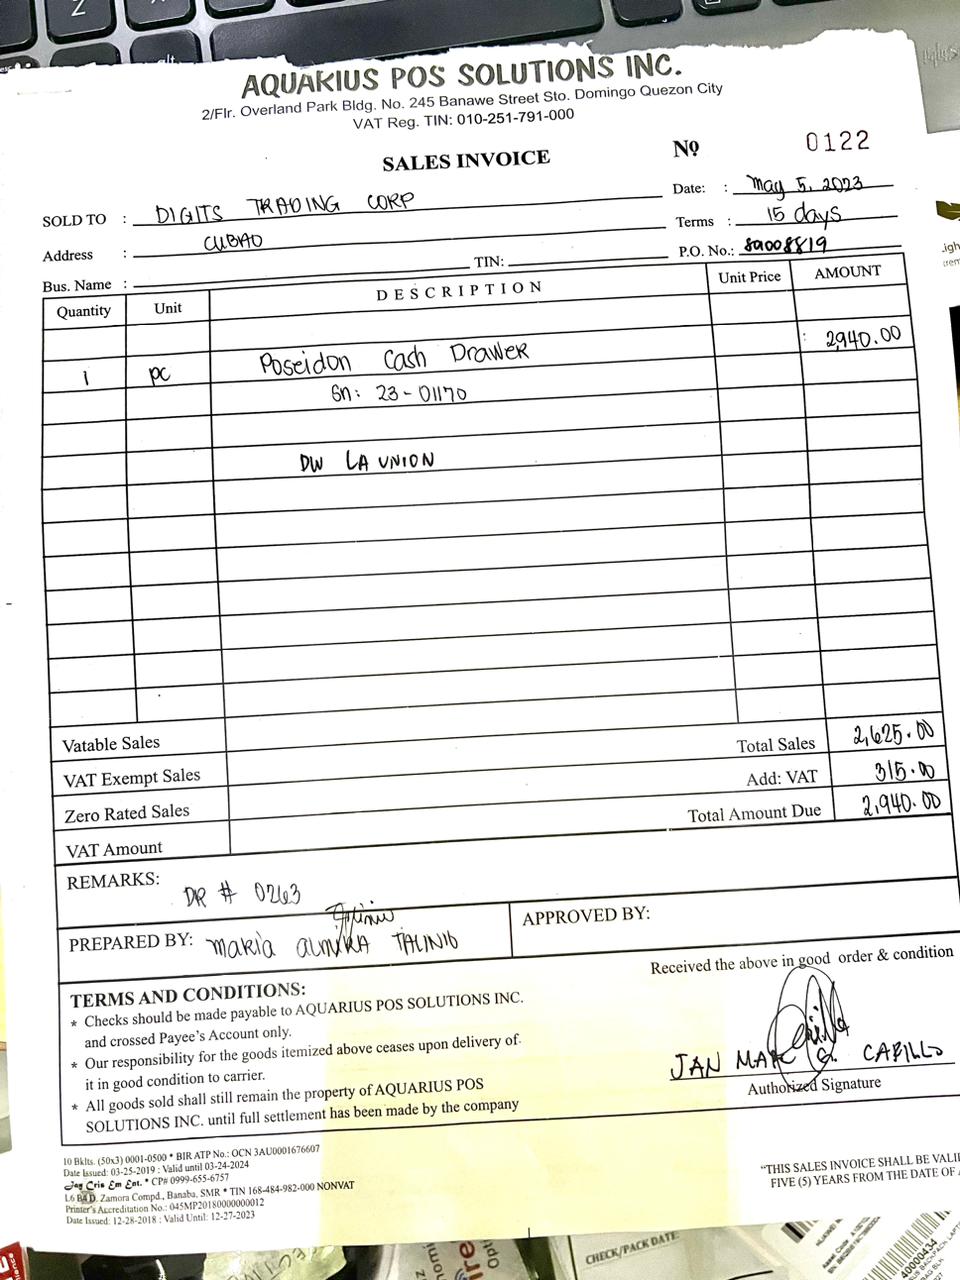 AQUARIUS POS SOLUTIONS INC.
2/Flr. Overland Park Bldg. No. 245 Banawe Street Sto. Domingo Quezon City
VAT Reg. TIN: 010-251-791-000
SALES INVOICE
№ 0122
Date: : May 5, 2023
SOLD TO : DIGITS TRADING CORP
Terms : 15 days
Address : CUBAO
P.O. No.: 89008819
Bus. Name : TIN:
Quantity Unit DESCRIPTION Unit Price AMOUNT
1 pc Poseidon Cash Drawer 2,940.00
Sn: 23-01170
DW LA UNION
Vatable Sales Total Sales 2,625.00
VAT Exempt Sales Add: VAT 315.00
Zero Rated Sales Total Amount Due 2,940.00
VAT Amount
REMARKS: DR # 0263
PREPARED BY: Maria Almira Talinio
APPROVED BY:
Received the above in good order & condition
TERMS AND CONDITIONS:
* Checks should be made payable to AQUARIUS POS SOLUTIONS INC.
and crossed Payee's Account only.
* Our responsibility for the goods itemized above ceases upon delivery of
it in good condition to carrier.
* All goods sold shall still remain the property of AQUARIUS POS
SOLUTIONS INC. until full settlement has been made by the company
JAN MARK G. CABILLO
Authorized Signature
10 Bklts. (50x3) 0001-0500 * BIR ATP No.: OCN 3AU0001676607
Date Issued: 03-25-2019 : Valid until 03-24-2024
Jay Cris Em Ent. * CP# 0999-655-6757
L6 B4 D. Zamora Compd., Banaba, SMR * TIN 168-484-982-000 NONVAT
Printer's Accreditation No.: 045MP20180000000012
Date Issued: 12-28-2018 : Valid Until: 12-27-2023
"THIS SALES INVOICE SHALL BE VALI
FIVE (5) YEARS FROM THE DATE OF
CHECK/PACK DATE:
40000434